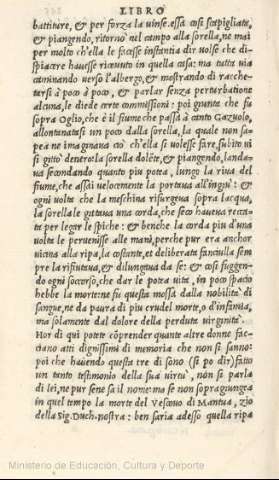 LIBRO
battiture, & per forza la uinse. essa cosi scapigliata,
& piangendo, ritornò nel campo alla sorella, ne mai
per molto ch'ella le facesse instantia dir uolse che di-
spiacere hauesse riceuuto in quella casa: ma tutta uia
caminando uerso l'albergo, & mostrando di racche-
tarsi à poco à poco, & parlar senza perturbatione
alcuna, le diede certe commissioni: poi giunta che fu
sopra Oglio, che è il fiume che passa à canto Gazuolo,
allontanatasi un poco dalla sorella, la quale non sa-
pea ne imaginaua ciò ch'ella si uolesse fare, subito ui
si gittò dentro: la sorella dolēte, & piangendo, l'anda-
ua secondando quanto piu potea, lungo la riua del
fiume, che assai uelocemente la portaua all'ingiù: &
ogni uolta che la meschina risurgeua sopra l'acqua,
la sorella le gittaua una corda, che seco haueua recca-
ta per legar le spiche: & benche la corda piu d'una
uolta le peruenisse alle mani, perche pur era anchor
uicina alla ripa, la costante, et deliberata fanciulla sem
pre la rifiutaua, & dilungaua da se: & cosi fuggen-
do ogni soccorso, che dar le potea uita, in poco spacio
hebbe la morte: ne fu questa mossa dalla nobilità di
sangue, ne da paura di piu crudel morte, o d'infamia,
ma solamente dal dolore della perduta uirginità.
Hor di qui potete cōprender quante altre donne fac-
ciano atti dignissimi di memoria che non si sanno:
poi che hauendo questa tre dì sono (si po dir) fatto
un tanto testimonio della sua uirtù, non si parla
di lei, ne pur se ne sa il nome: ma se non sopragiungea
in quel tempo la morte del Vescouo di Mantua, zio
della Sig. Duch. nostra: ben saria adesso quella ripa
Ministerio de Educación, Cultura y Deporte